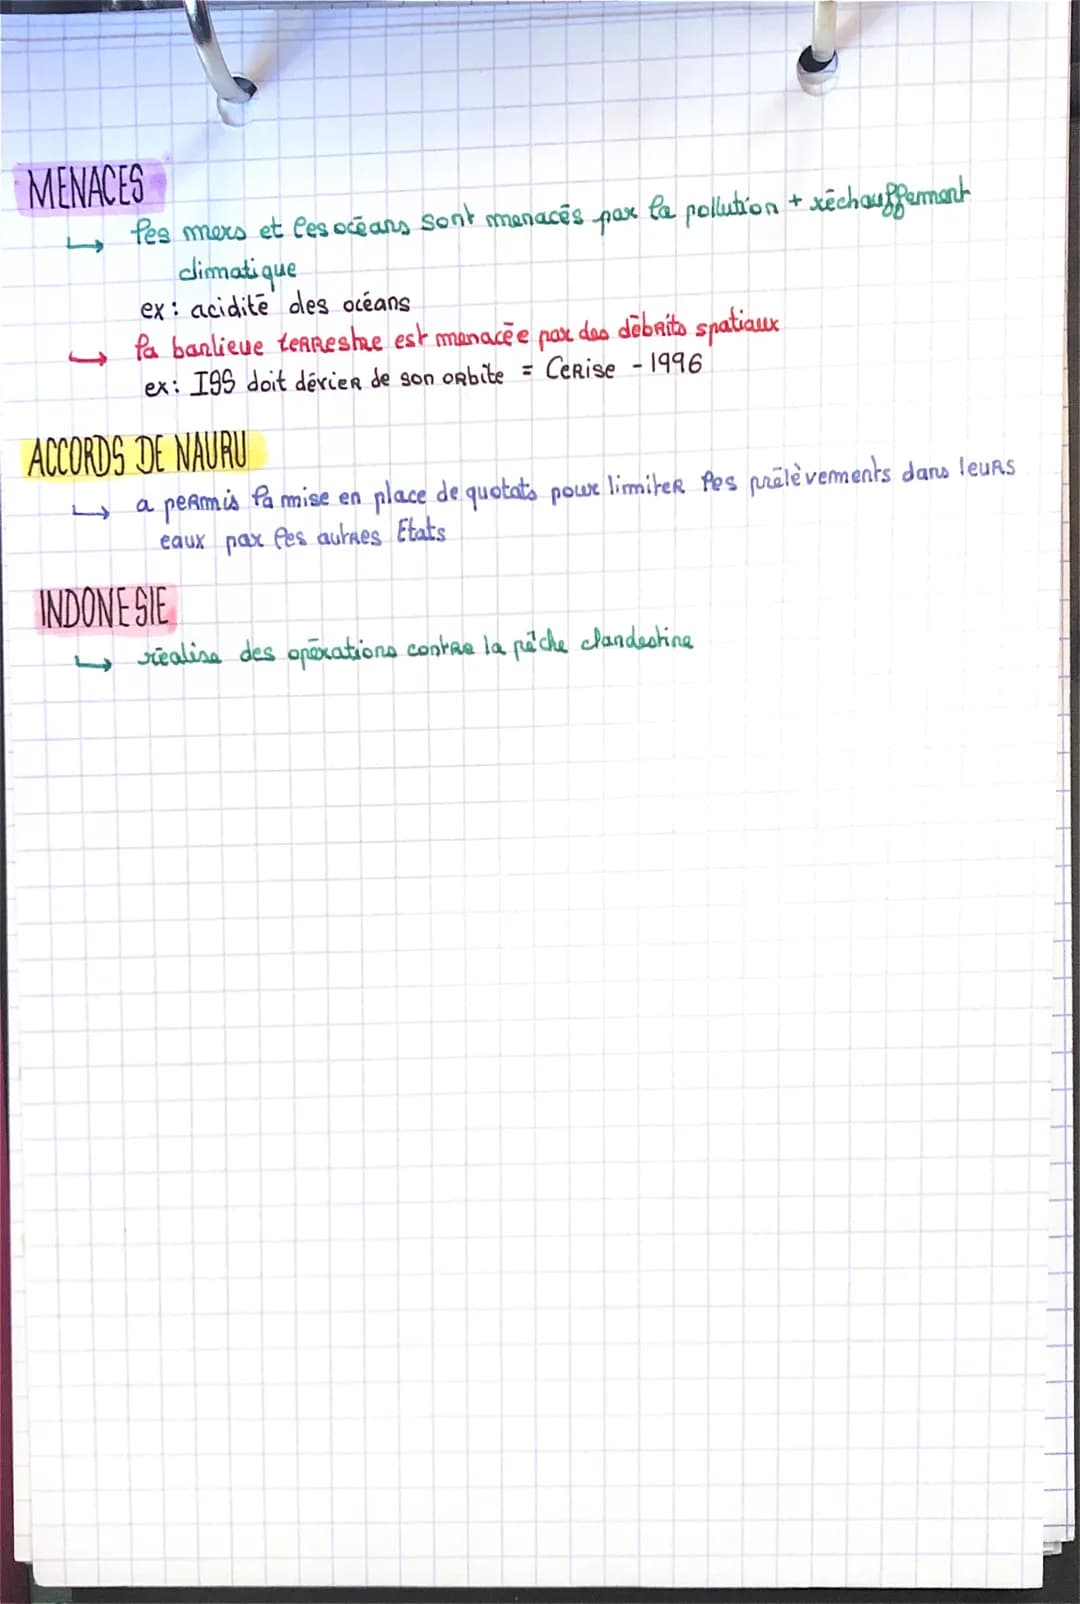 MENACES
↳ les mers et les océans sont menacés par la pollution + réchauffement
climatique
ex : acidité des océans
↳ la banlieue terrestre est menacée par des débrits spatiaux
ex : ISS doit dévier de son orbite = Cerise - 1996
ACCORDS DE NAURU
↳ a permis la mise en place de quotats pour limiter les prélèvements dans leurs
eaux par les autres Etats
INDONESIE
↳ réalise des opérations contre la pêche clandestine